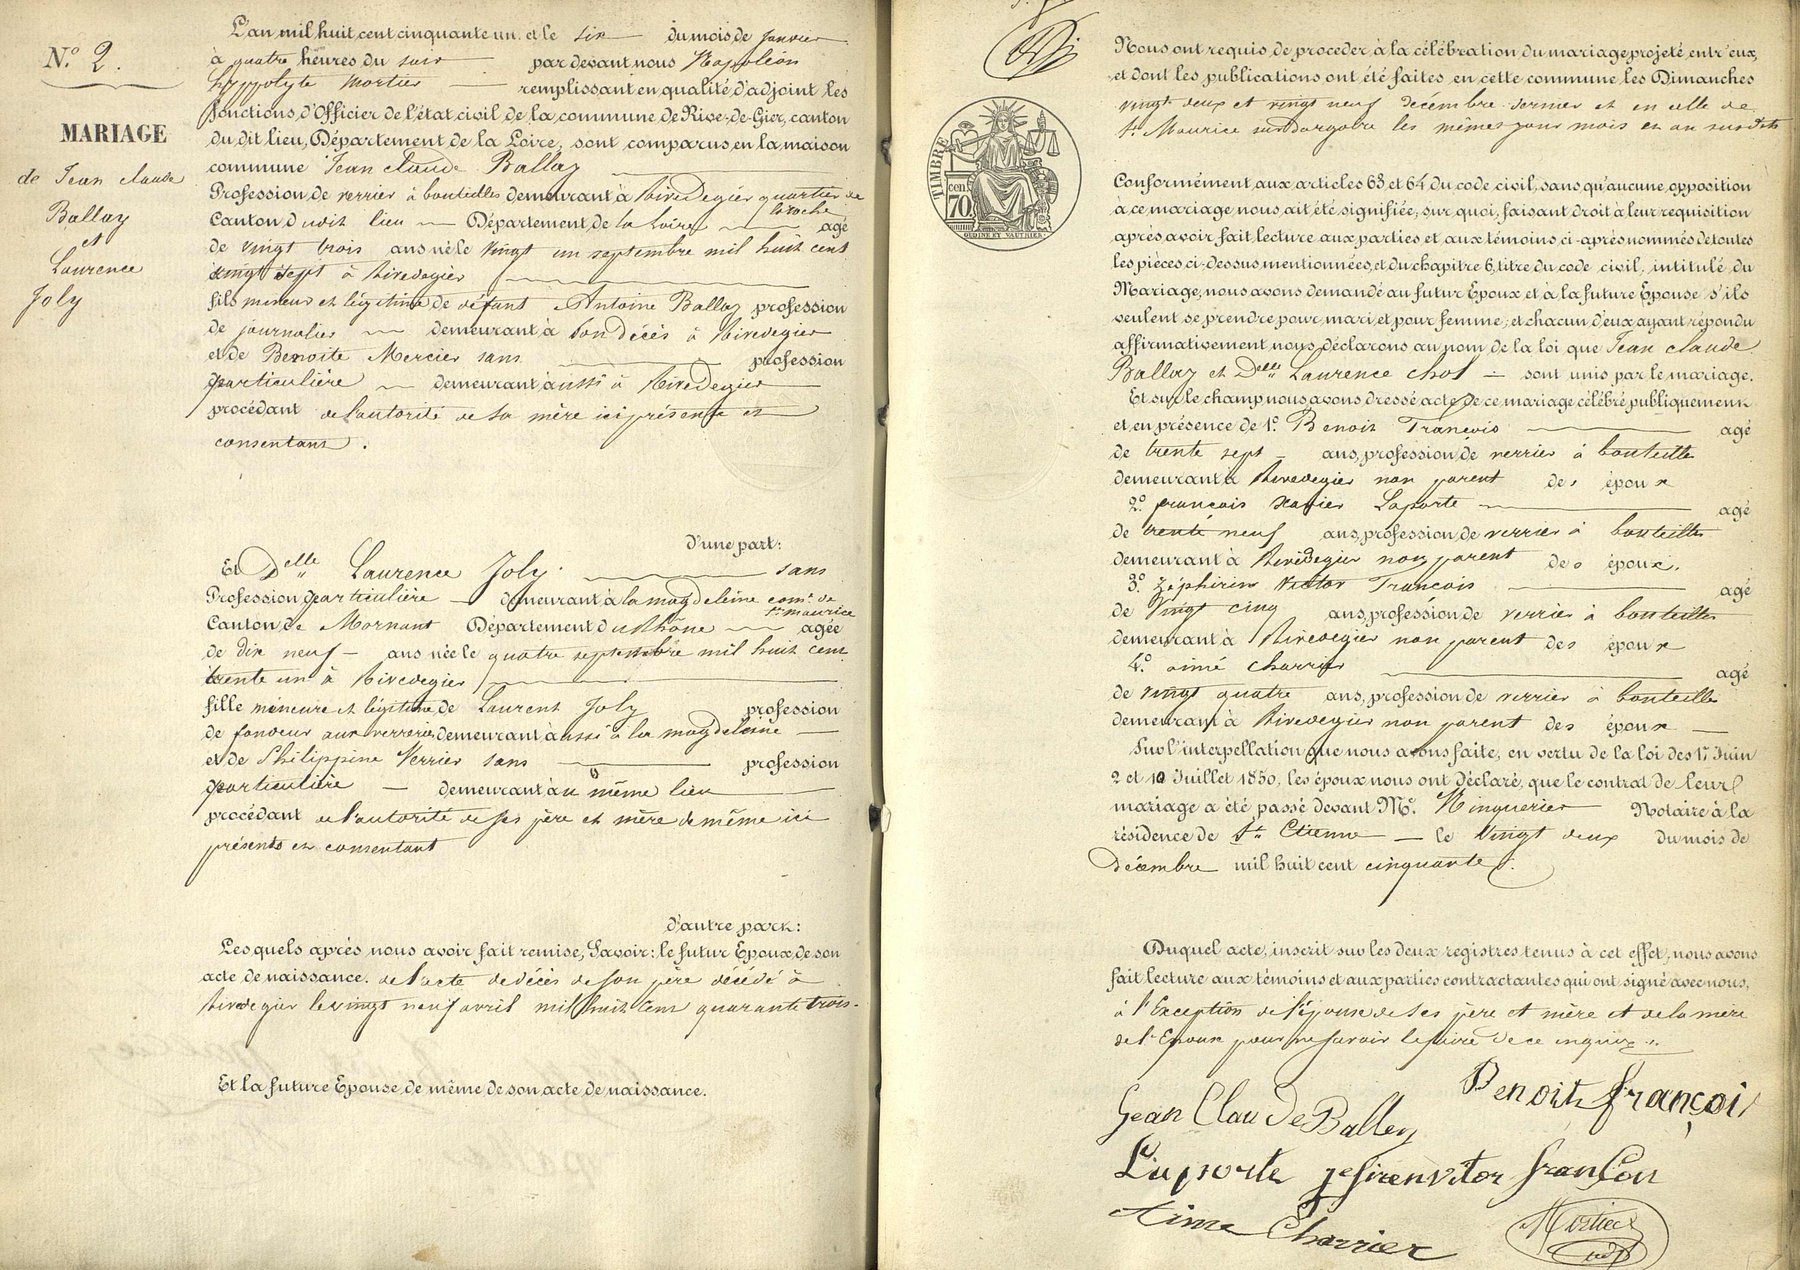 N.º 2.
MARIAGE
de Jean claude
Ballay
et
Laurence
Joly
L'an mil huit cent cinquante un. et le six du mois de janvier
à quatre heures du soir par devant nous Napoléon
hyppolyte Mortier remplissant en qualité d'adjoint les
fonctions d'Officier de l'état civil de la commune de Rive-de-Gier, canton
du dit lieu, Département de la Loire, sont comparus en la maison
commune Jean claude Ballay
Profession de verrier à bouteilles demeurant à Rivedegier quartier de
laroche
Canton dudit lieu Département de la Loire agé
de vingt trois ans né le vingt un septembre mil huit cent
vingt sept à Rivedegier
fils mineur et légitime de défunt Antoine Ballay profession
de journalier demeurant à Son décès à Rivedegier
et de Benoite Mercier sans profession
particulière demeurant aussi à Rivedegier
procédant de l'autorité de sa mère ici présente et
consentant.
d'une part:
Et Delle Laurence Joly sans
Profession particulière demeurant à la magdeleine com.e de
St maurice
Canton de Mornant Département du Rhône agée
de dix neuf ans née le quatre septembre mil huit cent
trente un à Rivedegier
fille mineure et légitime de Laurent Joly profession
de fondeur aux verreries demeurant aussi à la magdeleine
et de Philippine Verrier sans profession
particulière demeurant au même lieu
procédant de l'autorité de ses père et mère de même ici
présents et consentant
d'autre part:
Lesquels après nous avoir fait remise, Savoir: le futur Epoux de son
acte de naissance. de l'acte de décès de son père décédé à
Rivedegier le vingt neuf avril mil huit cent quarante trois.
Et la future Epouse de même de son acte de naissance.
TIMBRE
cen. 70
Nous ont requis de proceder à la célébration du mariage projeté entr'eux,
et dont les publications ont été faites en cette commune les Dimanches
vingt deux et vingt neuf décembre dernier et en celle de
St Maurice sur dargoire les mêmes jour mois et an susdits
Conformément aux articles 63 et 64 du code civil, sans qu'aucune opposition
à ce mariage nous ait été signifiée; sur quoi, faisant droit à leur requisition
après avoir fait lecture aux parties et aux témoins ci-après nommés de toutes
les pièces ci-dessus mentionnées, et du chapitre 6, titre du code civil, intitulé du
Mariage, nous avons demandé au futur Epoux et à la future Epouse s'ils
veulent se prendre pour mari et pour femme; et chacun d'eux ayant répondu
affirmativement nous déclarons au nom de la loi que Jean claude
Ballay et Delle Laurence chol sont unis par le mariage.
Et sur le champ nous avons dressé acte de ce mariage célébré publiquement
et en présence de 1.º Benoit François agé
de trente sept ans, profession de verrier à bouteille
demeurant à Rivedegier non parent des époux
2.º françois Xavier Laporte agé
de trente neuf ans, profession de verrier à bouteilles
demeurant à Rivedegier non parent des époux
3.º Zéphirin Victor François agé
de Vingt cinq ans, profession de verrier à bouteilles
demeurant à Rivedegier non parent des époux
4.º aimé charrier agé
de vingt quatre ans, profession de verrier à bouteille
demeurant à Rivedegier non parent des époux
Sur l'interpellation que nous avons faite, en vertu de la loi des 17 Juin
2 et 10 Juillet 1850, les époux nous ont déclaré, que le contrat de leur
mariage a été passé devant M.e Notaire à la
résidence de St Etienne le Vingt deux du mois de
décembre mil huit cent cinquante.
Duquel acte, inscrit sur les deux registres tenus à cet effet, nous avons
fait lecture aux témoins et aux parties contractantes qui ont signé avec nous,
à l'Exception de l'épouse de ses père et mère et de la mère
de l'Epoux pour ne savoir le faire de ce enquis
Benoit françois
Jean Claude Ballay
Laporte jefiren Vitor françon
Aime Charrier
Mortier
adj